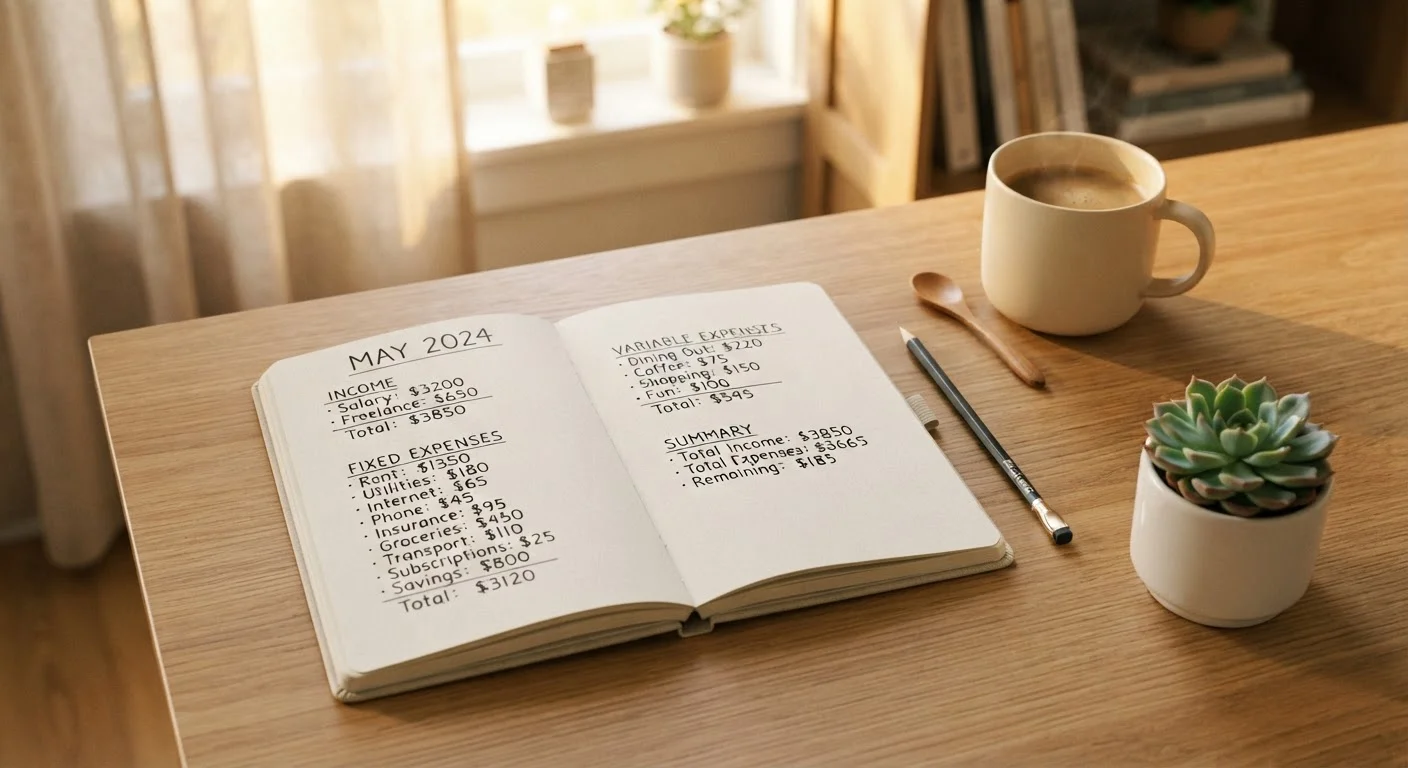 MAY 2024
INCOME
· Salary: $3200
· Freelance: $650
Total: $3850
FIXED EXPENSES
· Rent: $1350
· Utilities: $180
· Internet: $65
· Phone: $45
· Insurance: $95
· Groceries: $450
· Transport: $110
· Subscriptions: $25
· Savings: $800
Total: $3120
VARIABLE EXPENSES
· Dining Out: $220
· Coffee: $75
· Shopping: $150
· Fun: $100
Total: $545
SUMMARY
· Total Income: $3850
· Total Expenses: $3665
· Remaining: $185